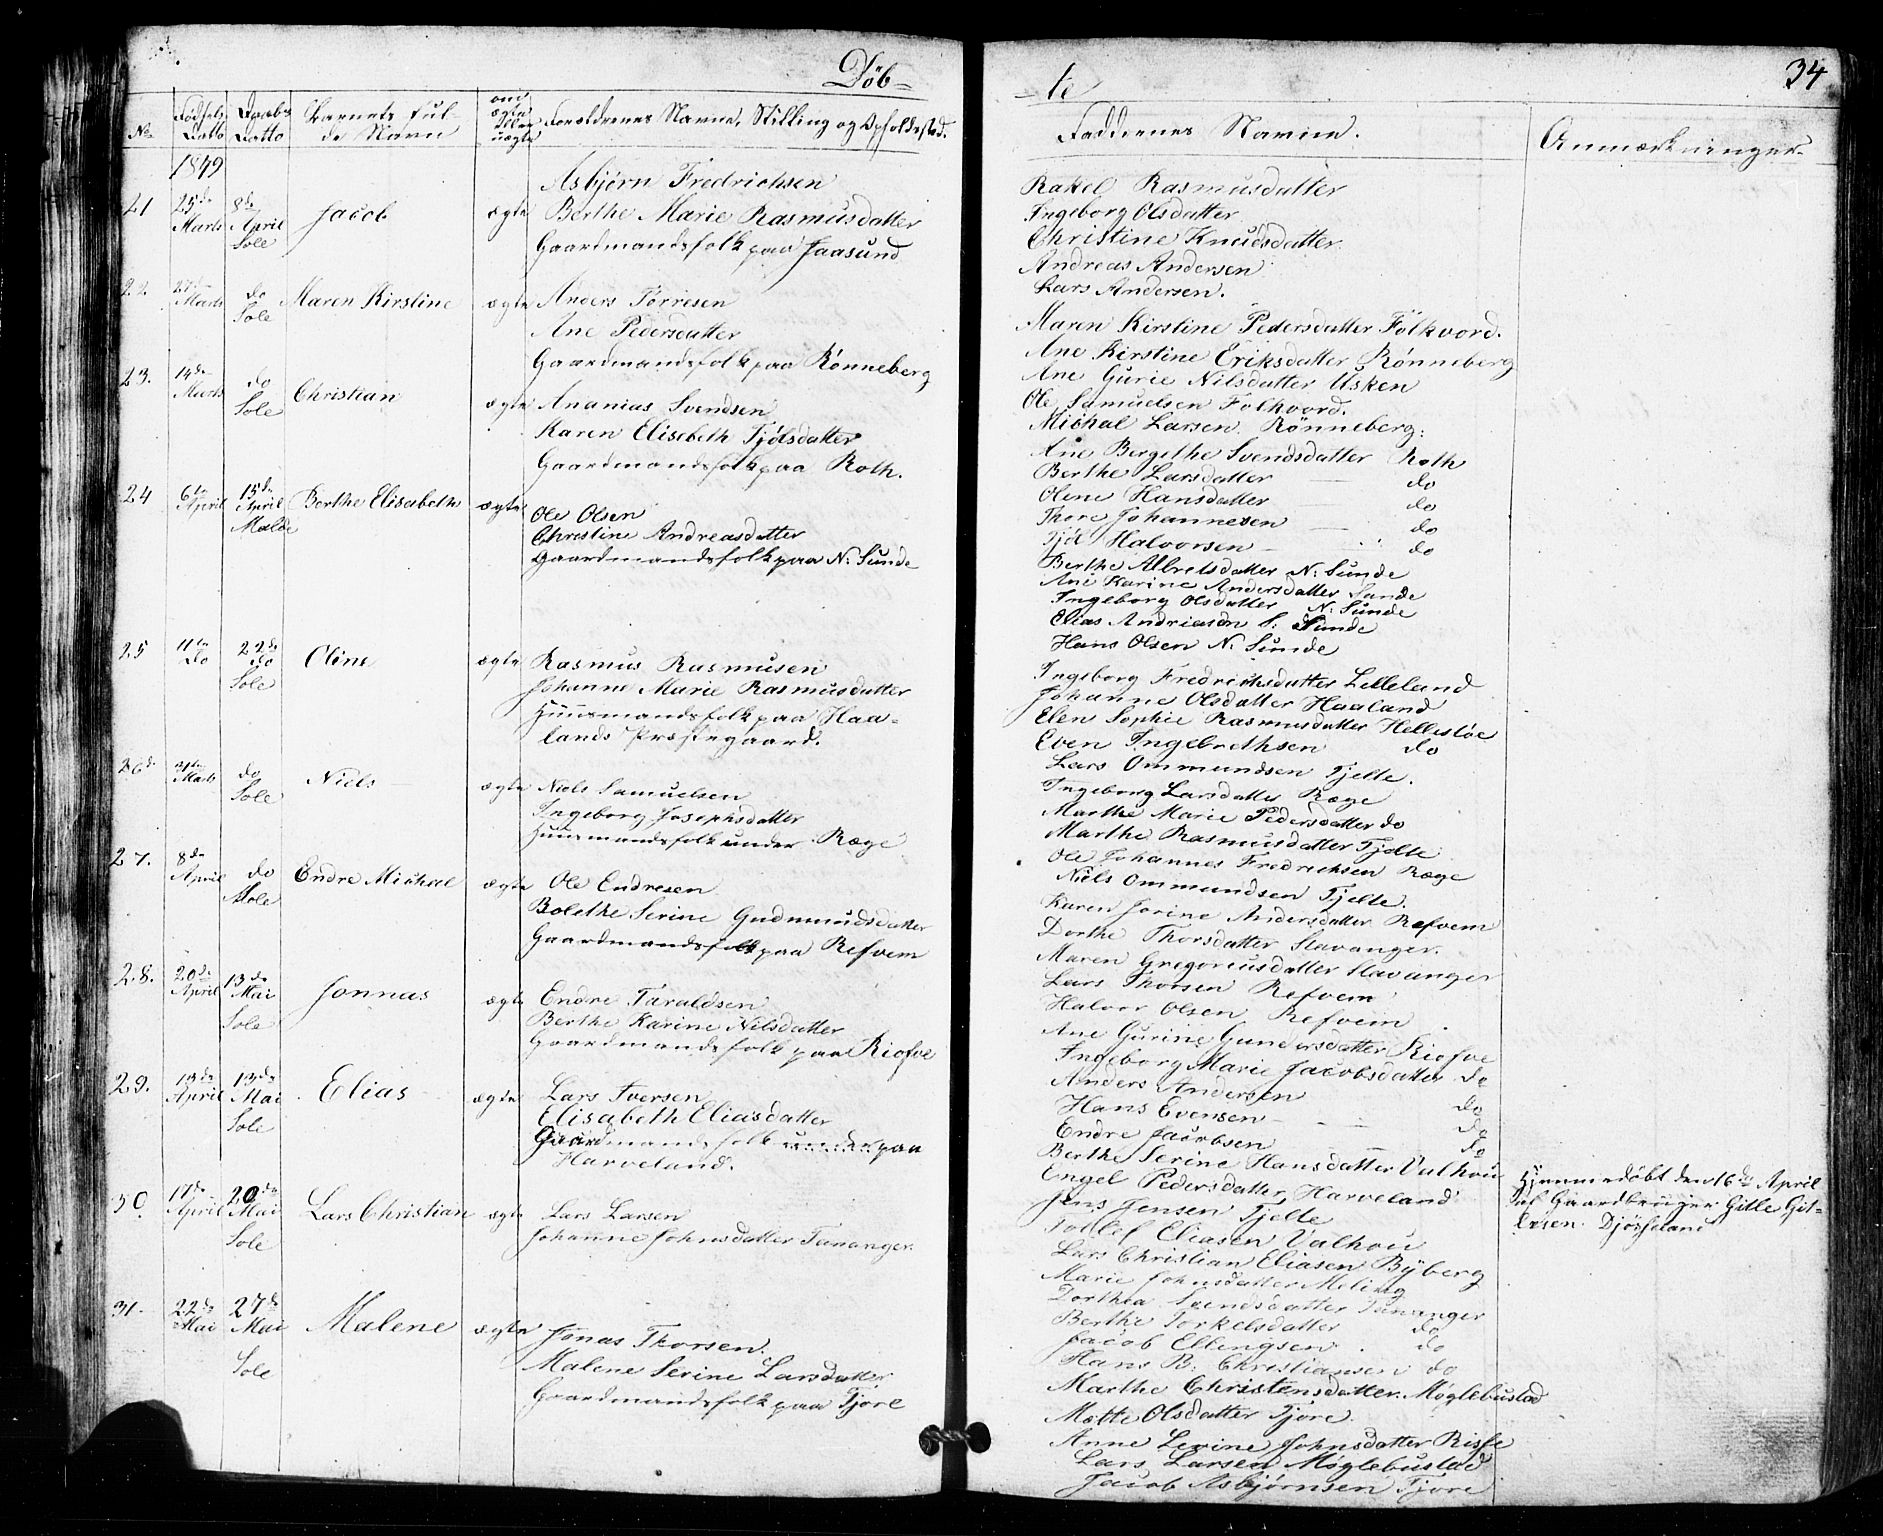 Døb-
No
Fødsels Datto
Daabs Datto
Barnets fulde Navn
om ægte eller uægte
Forældrenes Navne, Stilling og Opholdssted.
1849
Asbjørn Fredrichsen
21 25de Marts 8de April Sole Jacob ægte Berthe Marie Rasmusdatter
Gaardmandsfolk paa Jaasund
22. Marts do Sole Maren Kirstine ægte Anders Torresen
Ane Pedersdatter
Gaardmandsfolk paa Rønneberg
23. 14de Marts do Sole Christian ægte Ananias Svendsen
Karen Elisebeth Tjølsdatter
Gaardmandsfolk paa Roth.
24 6te April 15de April Malde Berthe Elisabeth ægte Ole Olsen
Christine Andreasdatter
Gaardmandsfolk paa N: Sunde
25 11te do 22de do Sole Oline ægte Rasmus Rasmusen
Johanne Marie Rasmusdatter
Huusmandsfolk paa Haa-
lands Præstegaard.
26. Marts do Sole Niels ægte Niels Samuelsen
Ingeborg Josephsdatter
Huusmandsfolk under Ræge
27. 8de April do Sole Endre Michael ægte Ole Endresen
Bolethe Serine Gudmundsdatter
Gaardmandsfolk paa Refvem
28. 20de April 13de Mai Sole Jonnas ægte Endre Taraldsen
Berthe Karine Nilsdatter
Gaardmandsfolk paa Riofve
29. 13de April 13de Mai Sole Elias ægte Lars Iversen
Elisabeth Eliasdatter
Gaardmandsfolk under paa
Harveland.
30. 17de April 20de Mai Sole Lars Christian ægte Lars Larsen
Johanne Johnsdatter Tananger.
31. 22de Mai 27de Mai Sole Malene ægte Jonas Thorsen.
Malene Serine Larsdatter
Gaardmandsfolk paa Tjore
-te
34
Faddernes Navne.
Anmærkninger.
Rakel Rasmusdatter
Ingeborg Olsdatter
Christine Knudsdatter
Andreas Andersen
Lars Andersen.
Maren Kirstine Pedersdatter Folkvord.
Ane Kirstine Eriksdatter Rønneberg
Ane Gurie Nilsdatter Usken
Ole Samuelsen Folkvord.
Michal Larsen Rønneberg.
Ane Bergithe Svendsdatter Roth
Berthe Larsdatter do
Olene Hansdatter do
Thore Johannesen do
Tjøl Halvorsen do
Berthe Albretsdatter N: Sunde
Ane Karine Andersdatter Sande
Ingeborg Olsdatter N: Sunde
Elias Andreasen S: Sunde
Hans Olsen N: Sunde
Ingeborg Fredrichsdatter Lelleland
Johanne Olsdatter Haaland
Elen Sophie Rasmusdatter Hellestøe
Even Ingebrethsen do
Lars Ommundsen Tjelte.
Ingeborg Larsdatter Ræge
Marthe Marie Pedersdatter do
Marthe Rasmusdatter Tjelte
Ole Johannes Fredrichsen Ræge
Niels Ommundsen Tjelte.
Karen Jorine Andersdatter Refvem
Dorthe Thorsdatter Stavanger.
Maren Gregoriusdatter Stavanger
Lars Thorsen Refvem
Halvor Olsen Refvem
Ane Gurine Gundersdatter Riofve
Ingeborg Marie Jacobsdatter do
Anders Andersen do
Hans Evensen do
Endre Jacobsen do
Berthe Serine Hansdatter Valhou
Engel Pedersdatter, Harveland
Jens Jensen Tjelte
Eliasen Valhou
Lars Christian Eliasen Byberg
Marie Johnsdatter Meling
Dorthea Svendsdatter Tananger
Berthe Torkelsdatter do
Jacob Ellengsen do
Hans B. Christiansen do
Marthe Christensdatter Møglebustad
Mætte Olsdatter Tjore.
Anne Serine Johnsdatter Risse
Lars Larsen Møglebustad
Jacob Asbjørnsen Tjore
Hjemmedøbt den 16de April
af Gaardbruger Gitle Git-
lesen. Djøsseland